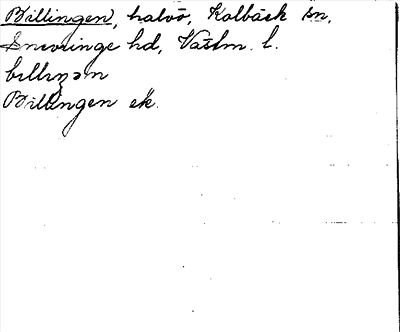 Billingen, halvö, Kolbäck sn,
Snevringe hd, Västm. l.
bıllıŋən
Billingen ek.